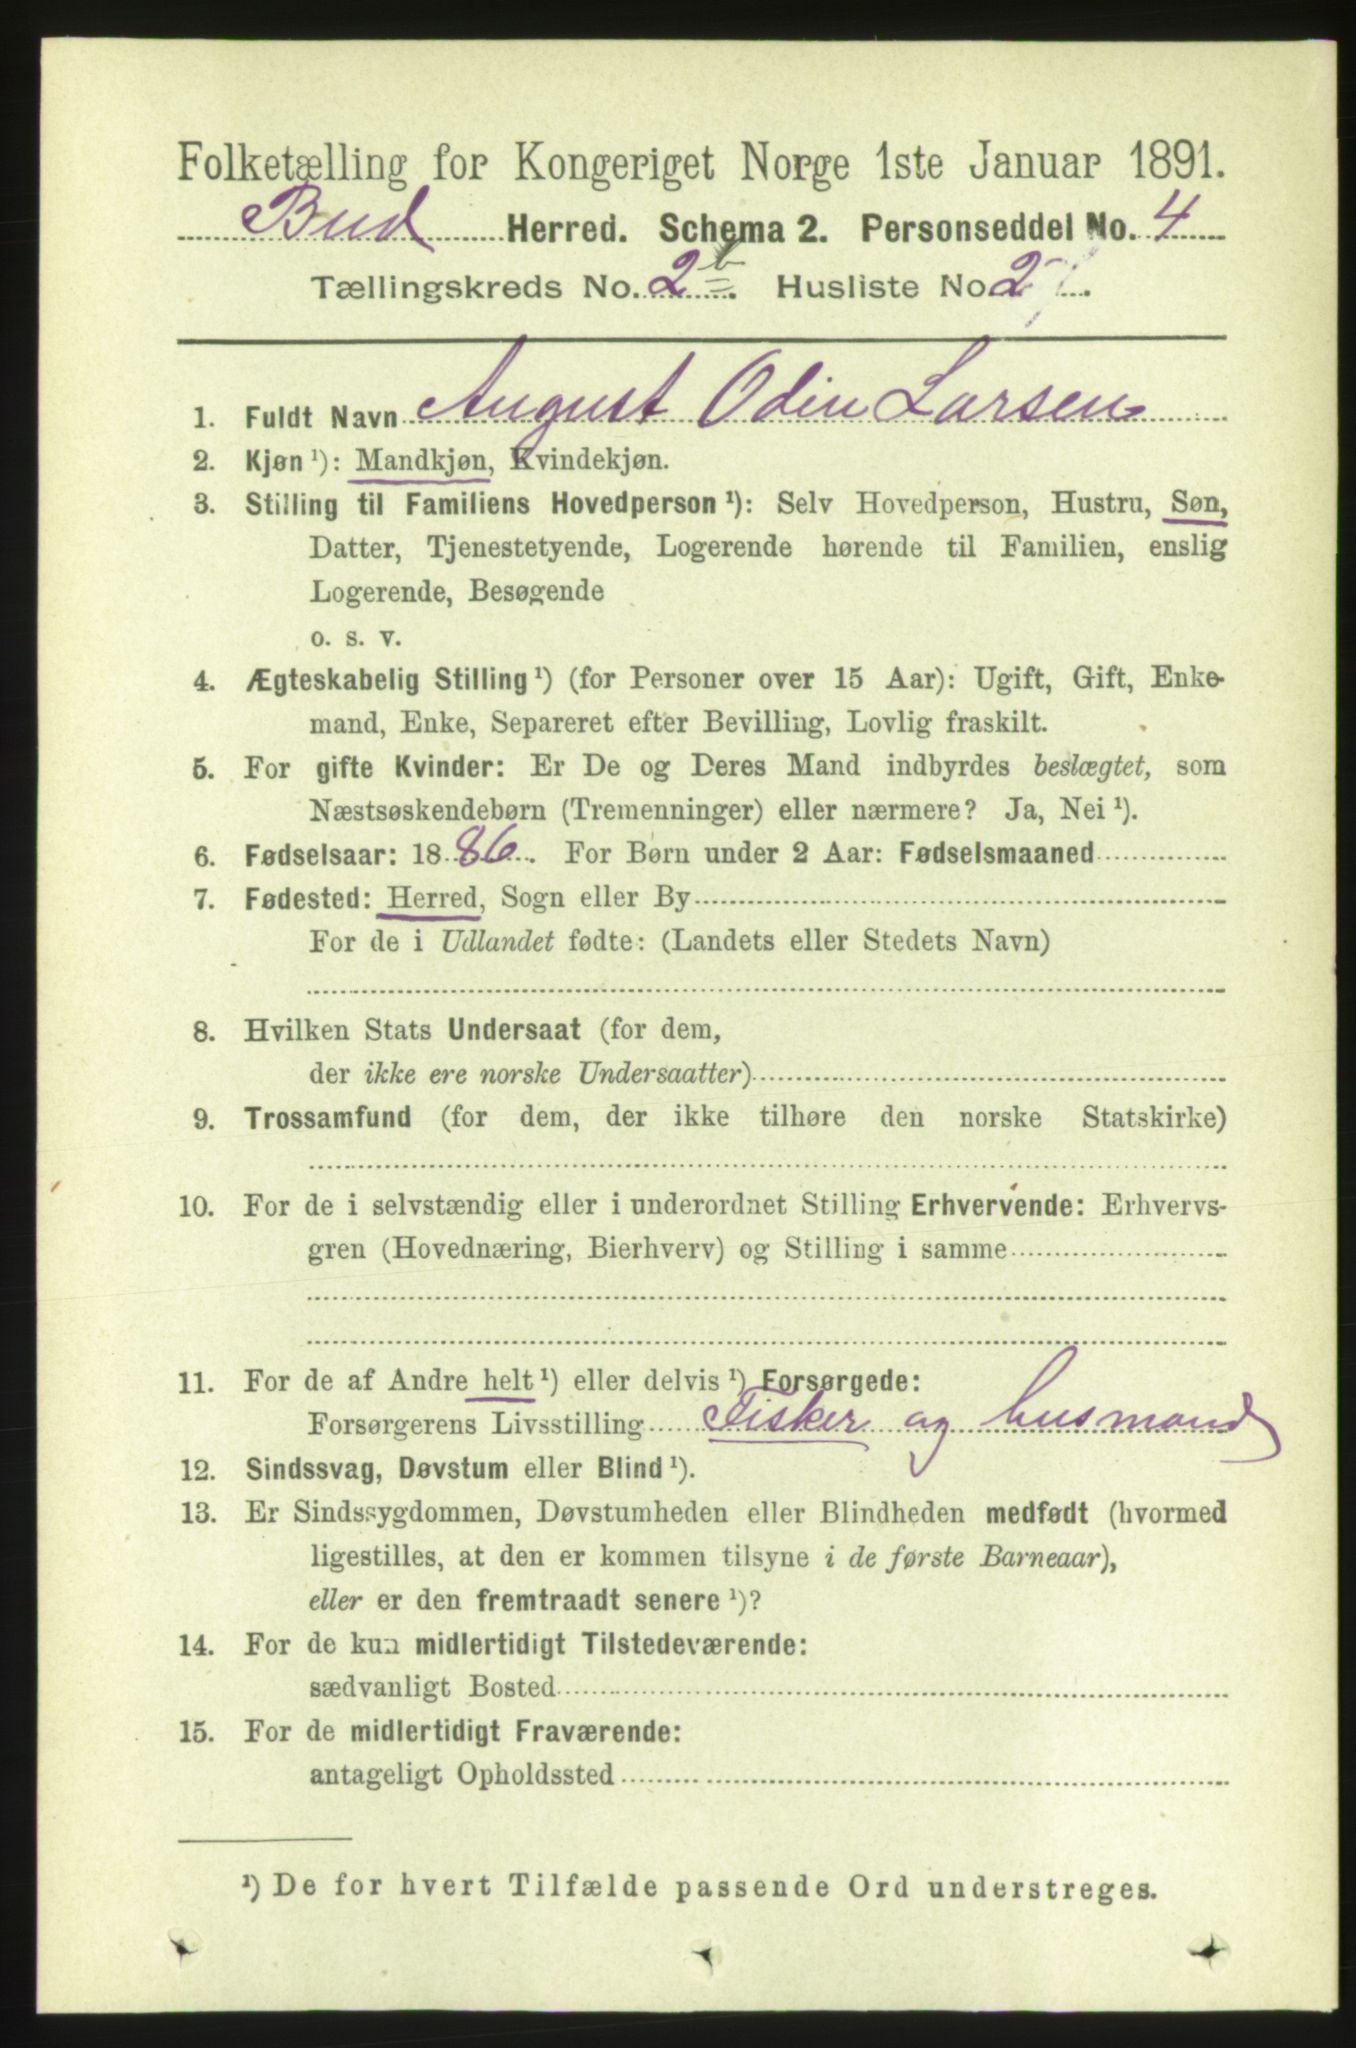 Folketælling for Kongeriget Norge 1ste Januar 1891.
Bud Herred. Schema 2. Personseddel No. 4
Tællingskreds No. 2 b. Husliste No 2
1. Fuldt Navn August Odin Larsen
2. Kjøn ¹): Mandkjøn, Kvindekjøn.
3. Stilling til Familiens Hovedperson ¹): Selv Hovedperson, Hustru, Søn,
Datter, Tjenestetyende, Logerende hørende til Familien, enslig
Logerende, Besøgende
o. s. v.
4. Ægteskabelig Stilling ¹) (for Personer over 15 Aar): Ugift, Gift, Enke-
mand, Enke, Separeret efter Bevilling, Lovlig fraskilt.
5. For gifte Kvinder: Er De og Deres Mand indbyrdes beslægtet, som
Næstsøskendebørn (Tremenninger) eller nærmere? Ja, Nei ¹).
6. Fødselsaar: 1886. For Børn under 2 Aar: Fødselsmaaned
7. Fødested: Herred, Sogn eller By
For de i Udlandet fødte: (Landets eller Stedets Navn)
8. Hvilken Stats Undersaat (for dem,
der ikke ere norske Undersaatter)
9. Trossamfund (for dem, der ikke tilhøre den norske Statskirke)
10. For de i selvstændig eller i underordnet Stilling Erhvervende: Erhvervs-
gren (Hovednæring, Bierhverv) og Stilling i samme
11. For de af Andre helt ¹) eller delvis ¹) Forsørgede:
Forsørgerens Livsstilling Fisker og husmand
12. Sindssvag, Døvstum eller Blind ¹).
13. Er Sindssygdommen, Døvstumheden eller Blindheden medfødt (hvormed
ligestilles, at den er kommen tilsyne i de første Barneaar),
eller er den fremtraadt senere ¹)?
14. For de kun midlertidigt Tilstedeværende:
sædvanligt Bosted
15. For de midlertidigt Fraværende:
antageligt Opholdssted
¹) De for hvert Tilfælde passende Ord understreges.